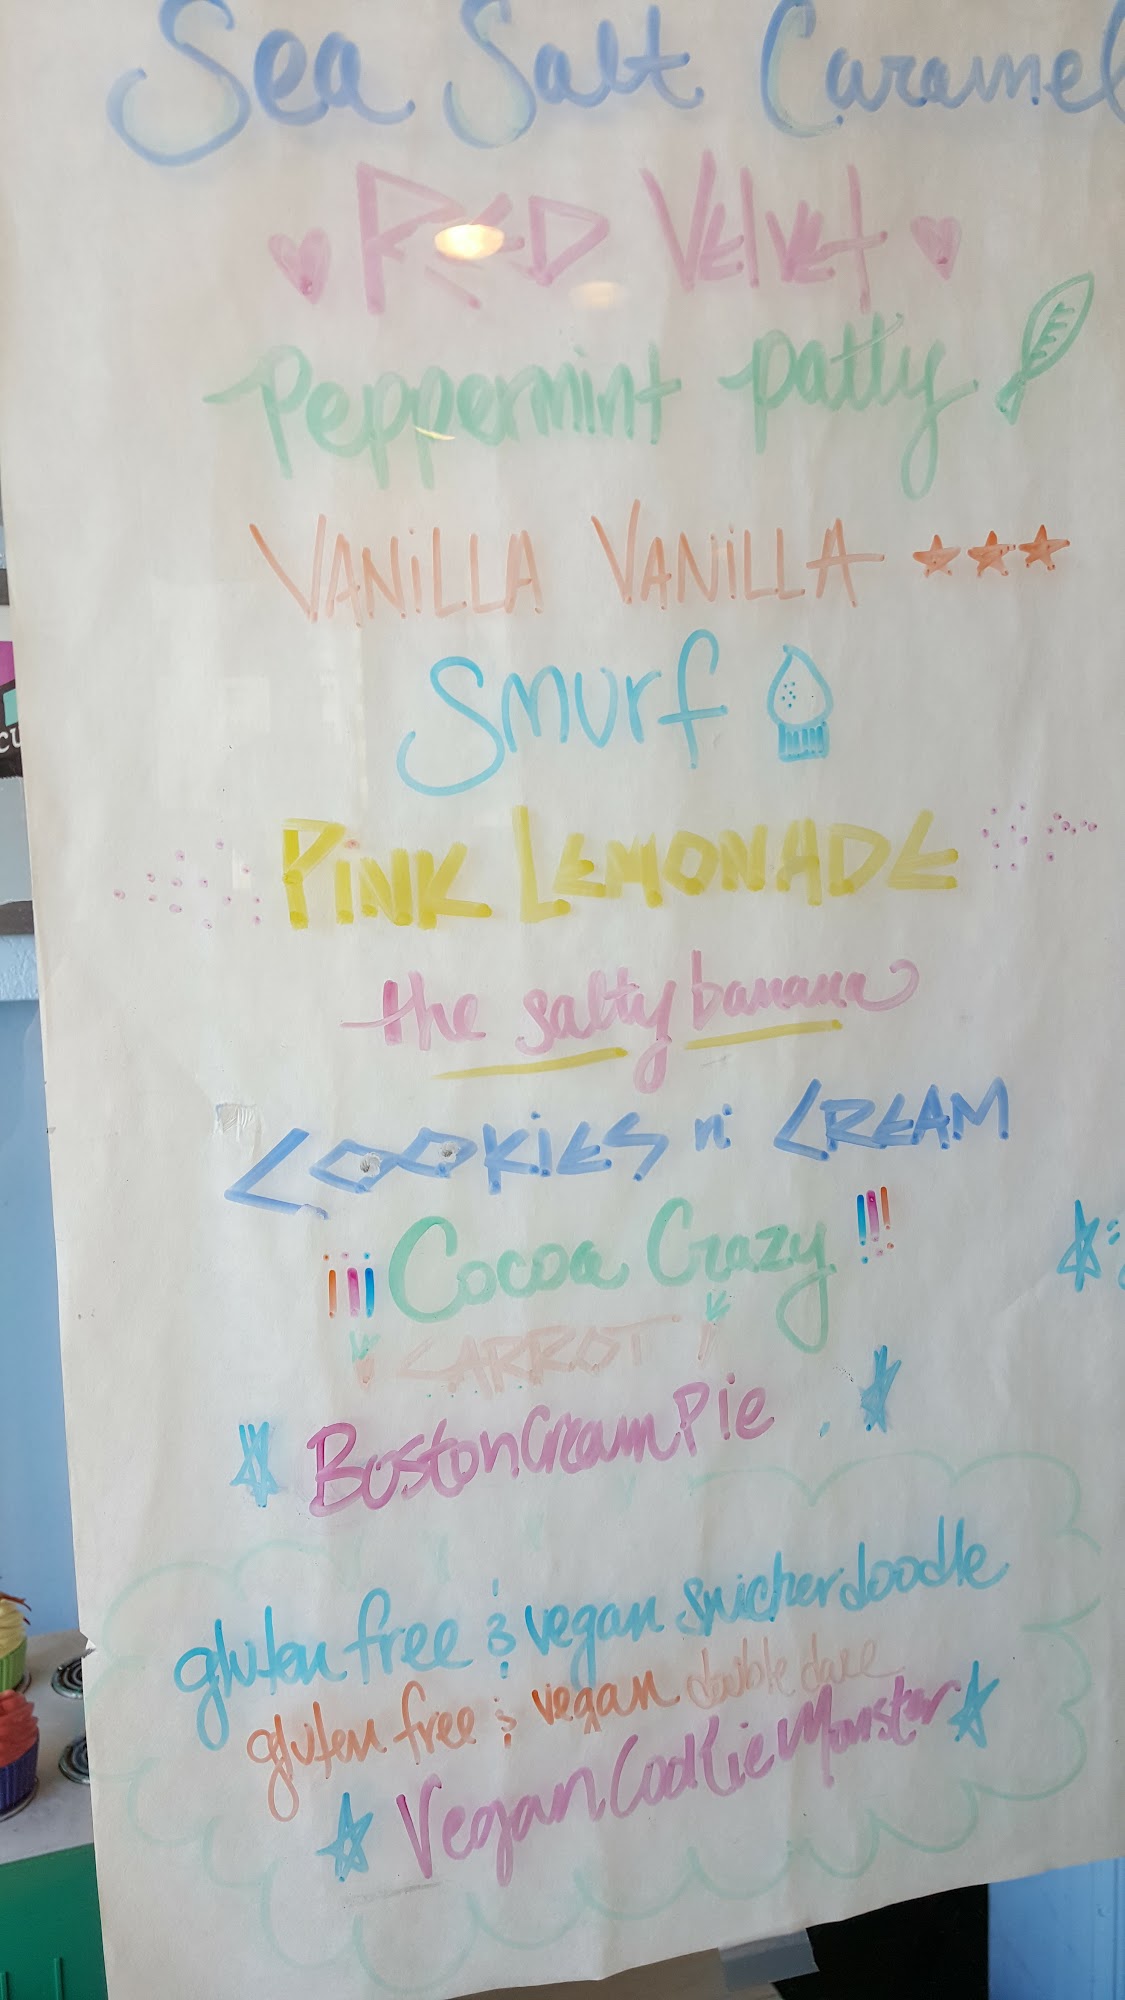 Sea Salt Caramel
RED VELVET
Peppermint patty
VANILLA VANILLA
Smurf
PINK LEMONADE
the salty banana
COOKIES n' CREAM
¡¡¡ Cocoa Crazy !!!
CARROT
Boston Cream Pie
gluten free & vegan snickerdoodle
gluten free & vegan double dare
Vegan Cookie Monster